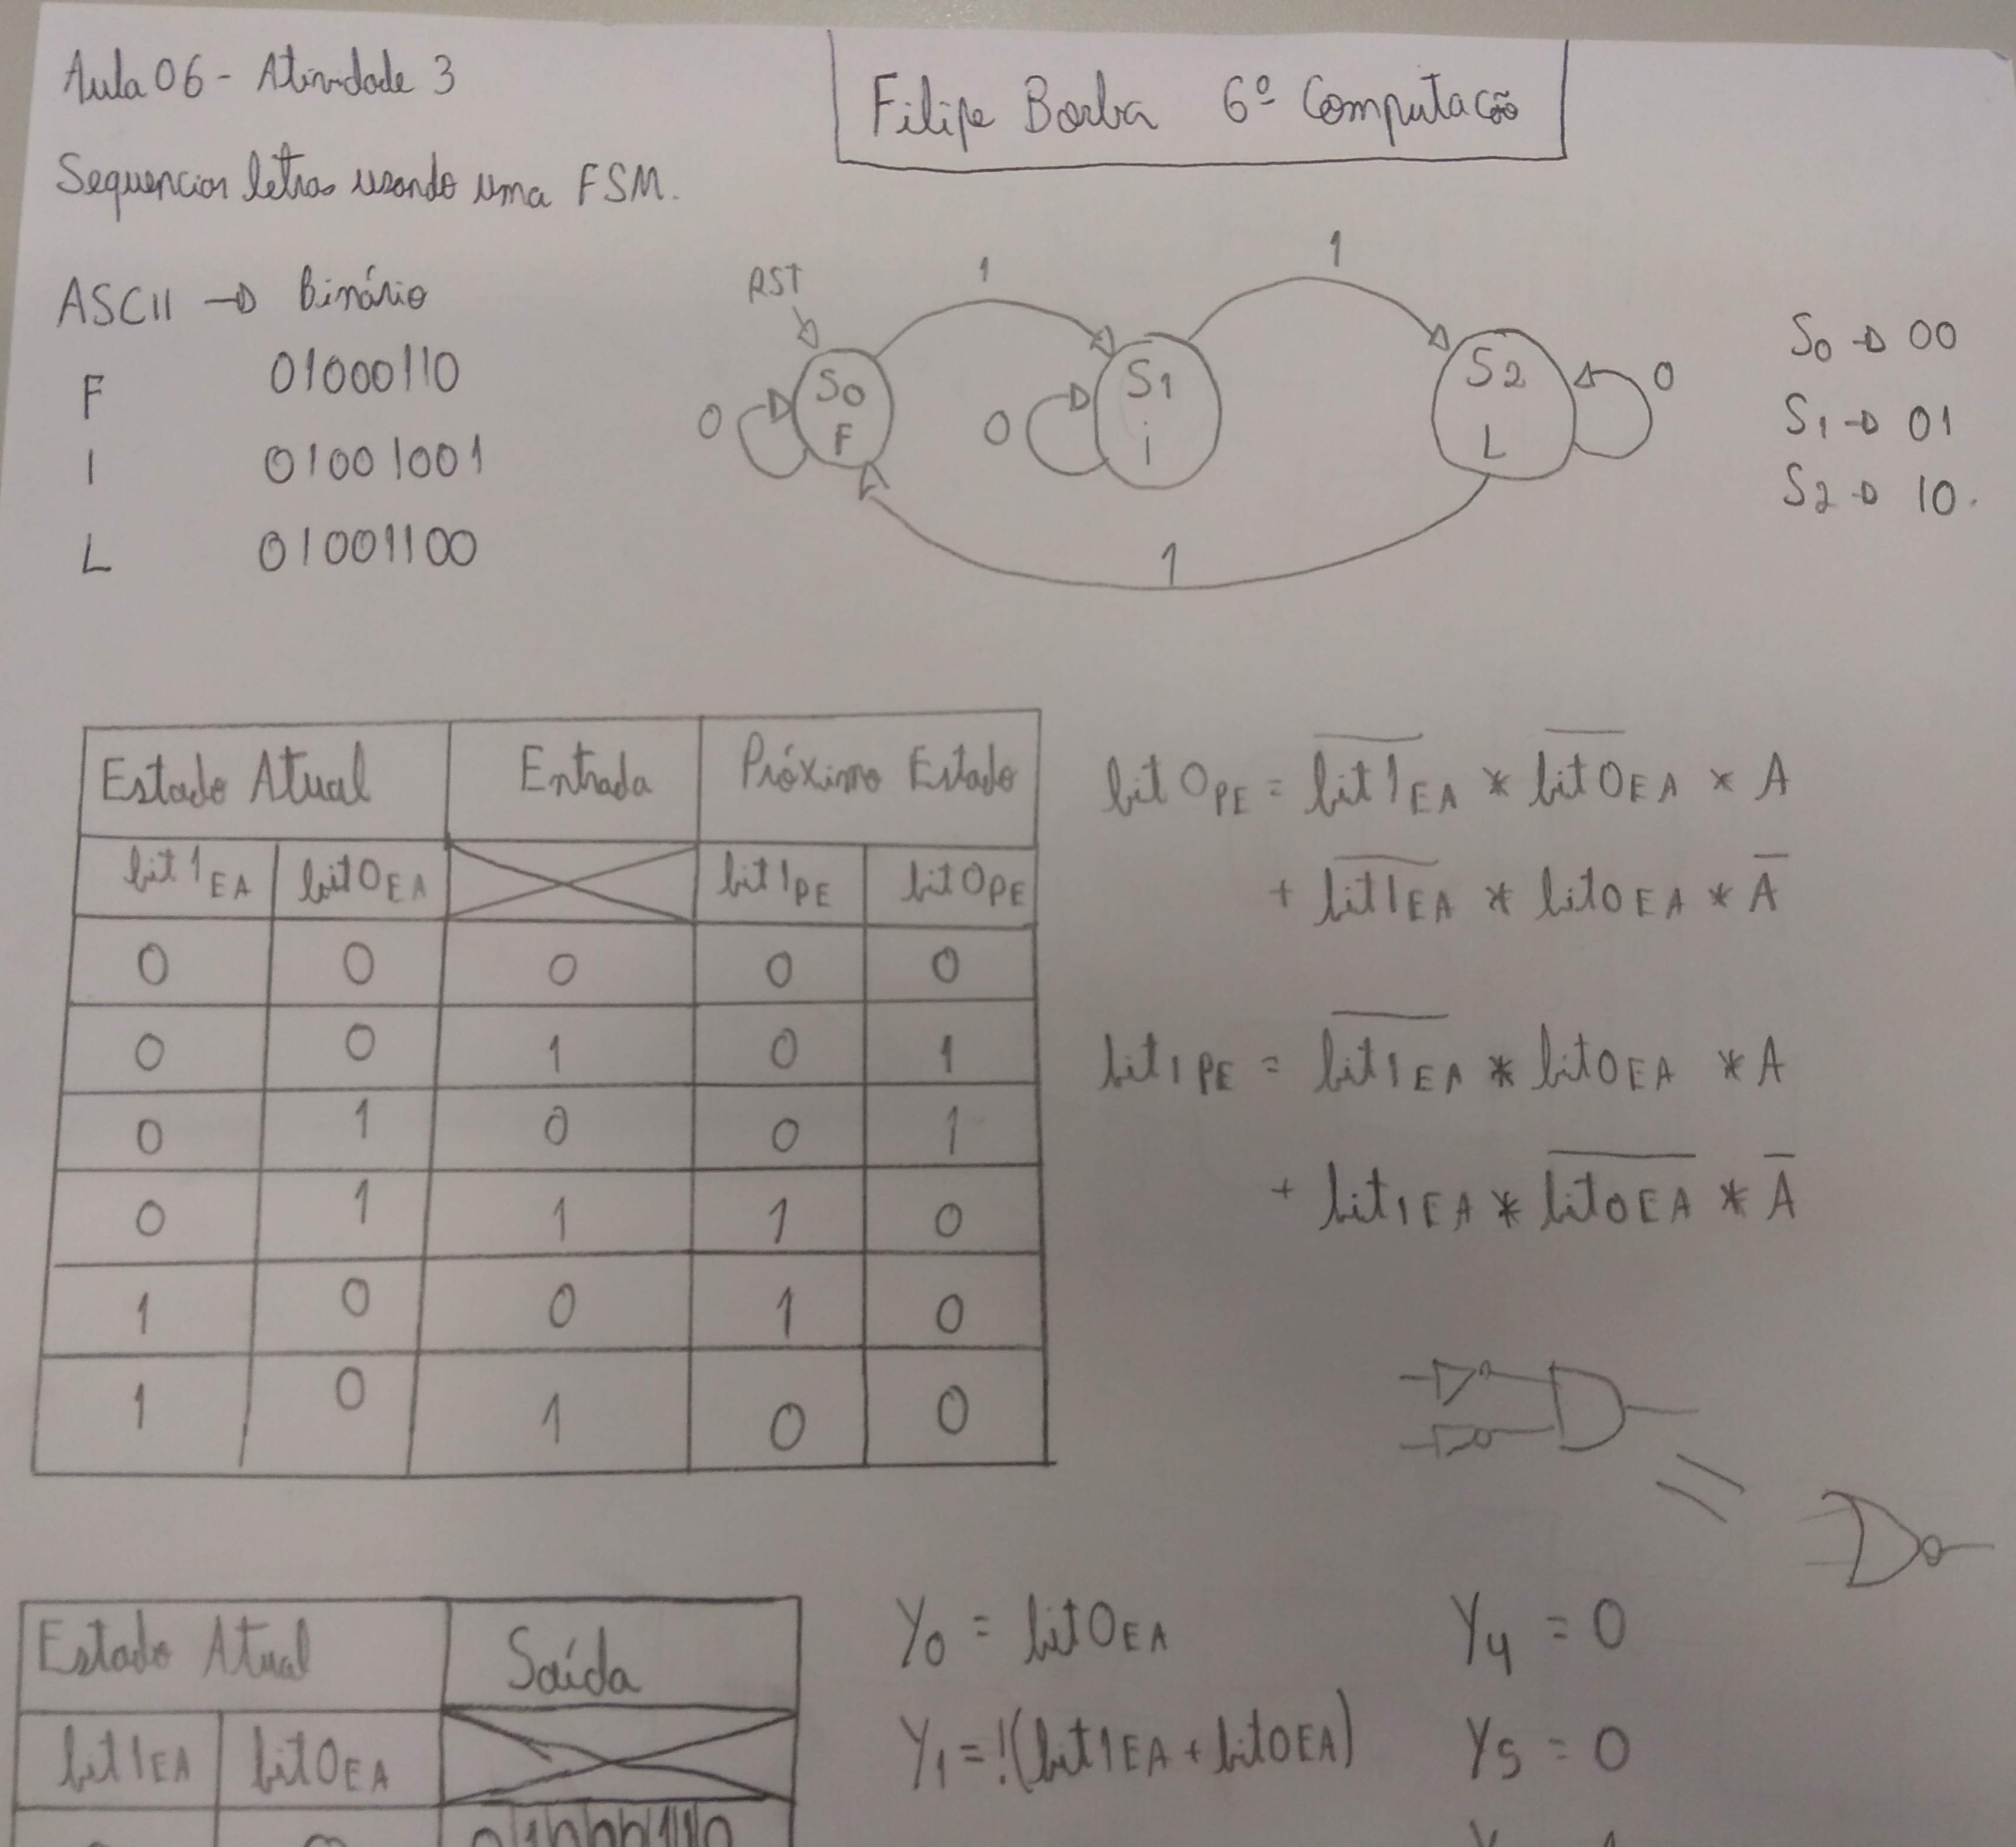 Aula 06 - Atividade 3
Filipe Borba 6º Computação
Sequenciar letras usando uma FSM.
ASCII → Binário
F 01000110
I 01001001
L 01001100
RST
1
1
S0
F
0
S1
i
0
S2
L
0
1
S0 → 00
S1 → 01
S2 → 10.
Estado Atual Entrada Próximo Estado
bit1EA bit0EA bit1PE bit0PE
0 0 0 0 0
0 0 1 0 1
0 1 0 0 1
0 1 1 1 0
1 0 0 1 0
1 0 1 0 0
bit0PE = b̅i̅t̅1̅EA * b̅i̅t̅0̅EA * A
+ b̅i̅t̅1̅E̅A̅ * bit0EA * A̅
bit1PE = b̅i̅t̅1̅E̅A̅ * bit0EA * A
+ bit1EA * b̅i̅t̅0̅E̅A̅ * A̅
Estado Atual Saída
bit1EA bit0EA
Y0 = bit0EA
Y1 = !(bit1EA + bit0EA)
Y4 = 0
Y5 = 0